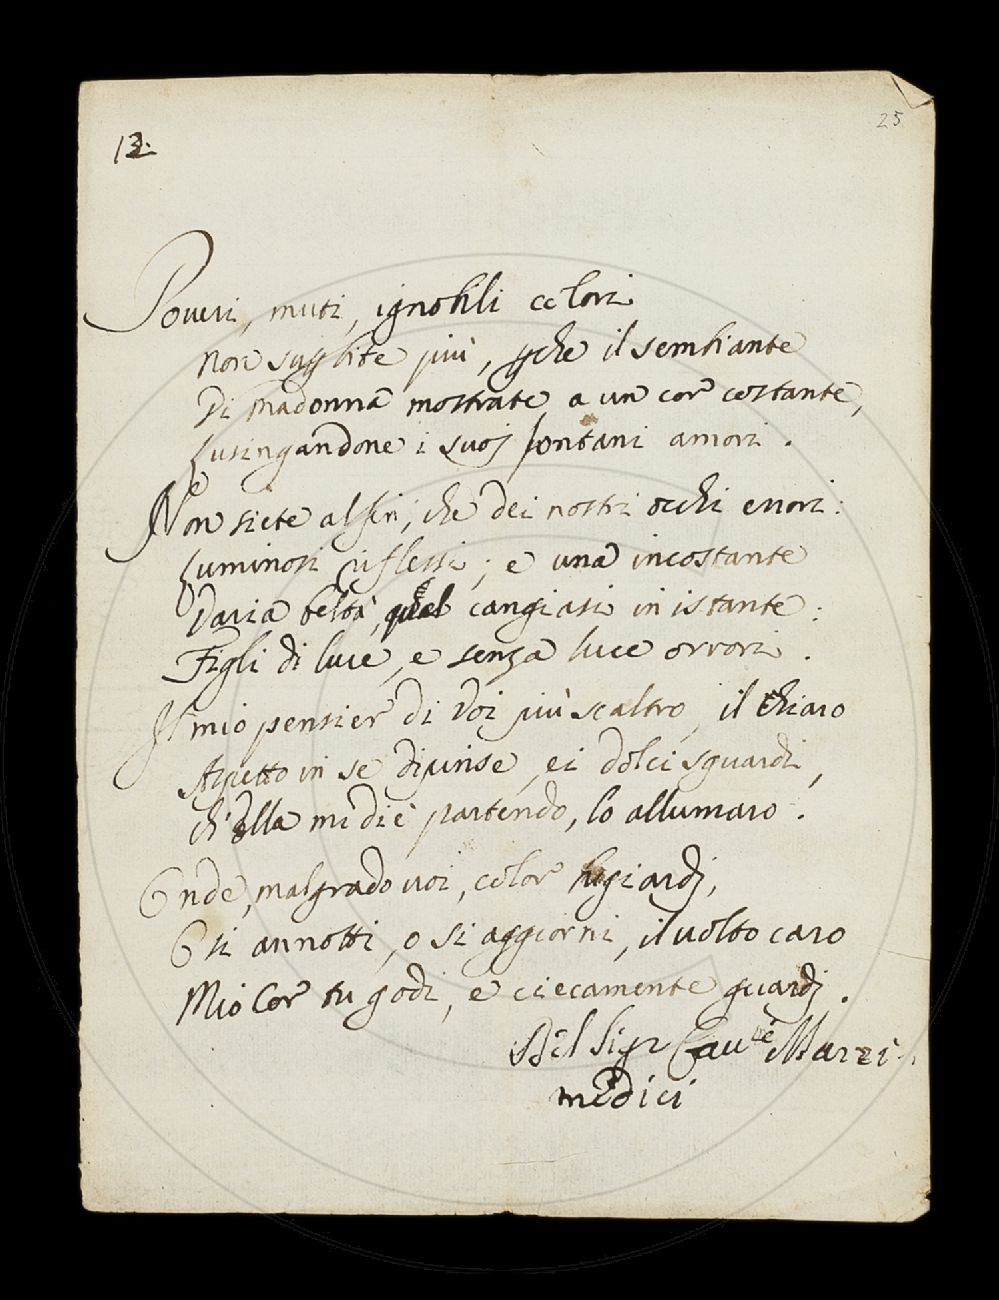 12.
25
Poveri, muti, ignobili colori
Non supplite più, perche il sembiante
Di madonna mostrate a un cor costante,
Lusingandone i suoj lontani amori.
Non siete alfin, che dei nostri occhi errori:
Luminosi riflessi; e una incostante
Varia beltà, cangiasi in istante:
Figli di luce, e senza luce orrori.
Il mio pensier di Voi più scaltro, il chiaro
Aspetto in se dipinse, ei dolci sguardi,
ch'Ella mi diè partendo, lo allumaro.
Onde, malgrado voi, color bugiardj,
O si annotti, o si aggiorni, il volto caro
Mio Cor tu godi, e ciecamente guardj.
Del Sigr Cavre Marzi
medici